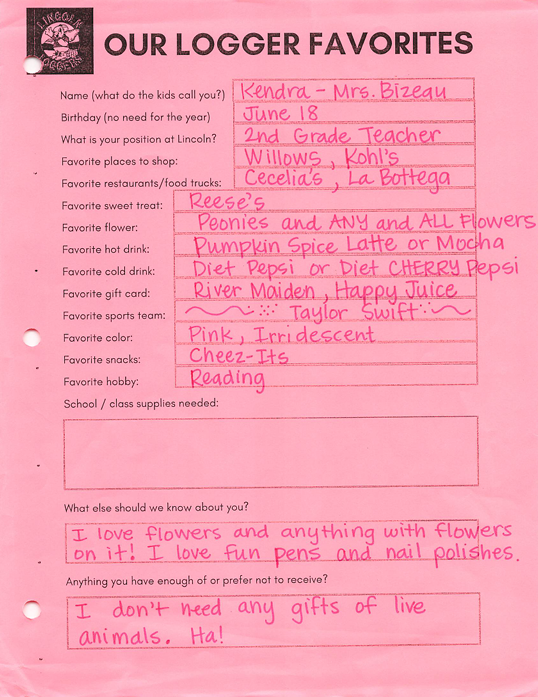 LINCOLN
LOGGERS
OUR LOGGER FAVORITES
Name (what do the kids call you?) Kendra - Mrs. Bizeau
Birthday (no need for the year) June 18
What is your position at Lincoln? 2nd Grade Teacher
Favorite places to shop: Willows, Kohl's
Favorite restaurants/food trucks: Cecelia's, La Bottega
Favorite sweet treat: Reese's
Favorite flower: Peonies and ANY and ALL Flowers
Favorite hot drink: Pumpkin Spice Latte or Mocha
Favorite cold drink: Diet Pepsi or Diet CHERRY Pepsi
Favorite gift card: River Maiden, Happy Juice
Favorite sports team: Taylor Swift
Favorite color: Pink, Irridescent
Favorite snacks: Cheez-Its
Favorite hobby: Reading
School / class supplies needed:
What else should we know about you?
I love flowers and anything with flowers
on it! I love fun pens and nail polishes.
Anything you have enough of or prefer not to receive?
I don't need any gifts of live
animals. Ha!